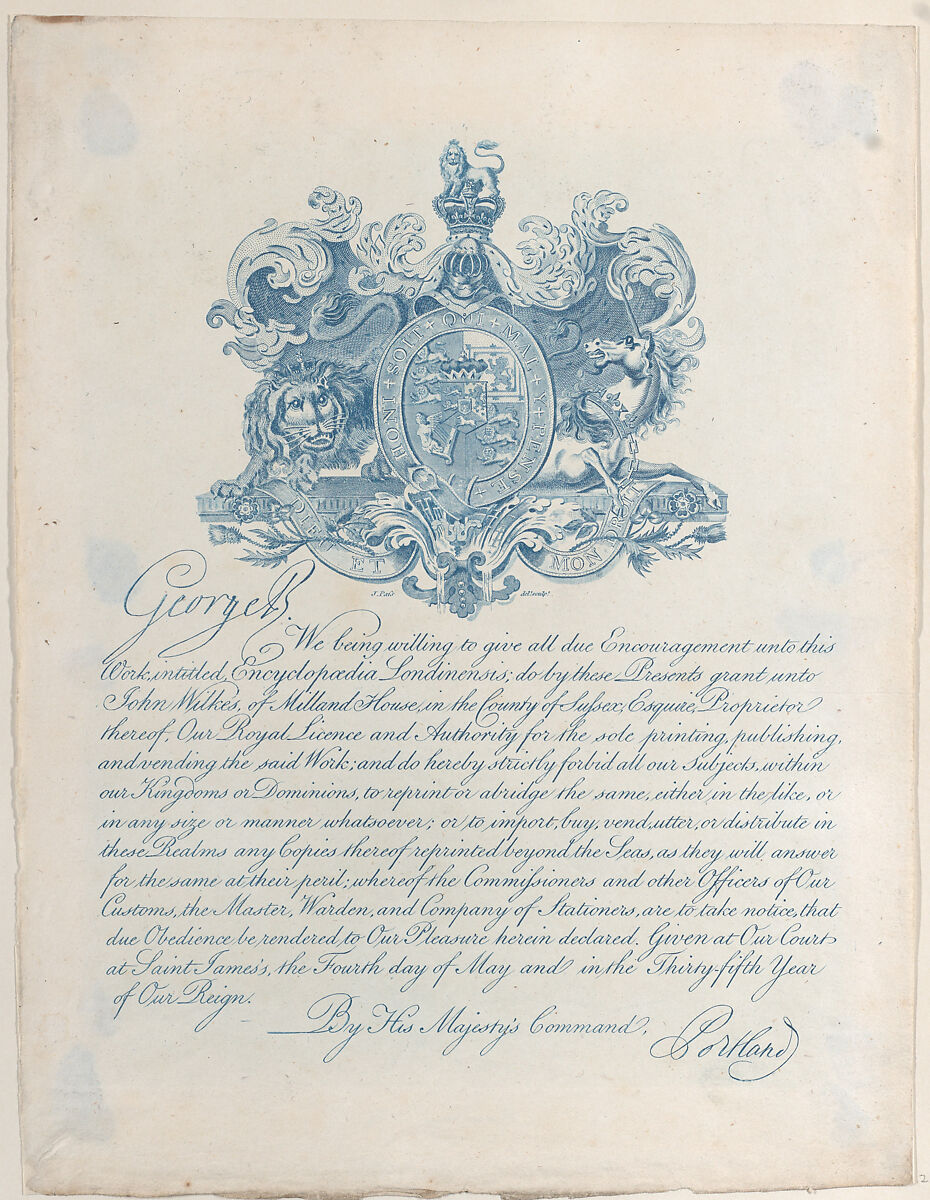 HONI + SOIT + QUI + MAL + Y + PENSE +
DIEU ET MON DROIT
J. Paſs del.t sculp.t
George R.
We being willing to give all due Encouragement unto this
Work, intitled, Encyclopædia Londinensis; do by these Presents grant unto
John Wilkes, of Milland House, in the County of Suſsex, Esquire, Proprietor
thereof, Our Royal Licence and Authority for the sole printing, publishing,
and vending the said Work; and do hereby strictly forbid all our Subjects, within
our Kingdoms or Dominions, to reprint or abridge the same, either in the like, or
in any size or manner whatsoever; or to import, buy, vend, utter, or distribute in
these Realms any Copies thereof reprinted beyond the Seas, as they will answer
for the same at their peril; whereof the Commiſsioners and other Officers of Our
Customs, the Master, Warden, and Company of Stationers, are to take notice, that
due Obedience be rendered to Our Pleasure herein declared. Given at Our Court
at Saint James's, the Fourth day of May and in the Thirty-fifth Year
of Our Reign.
By His Majesty's Command,
Portland
2